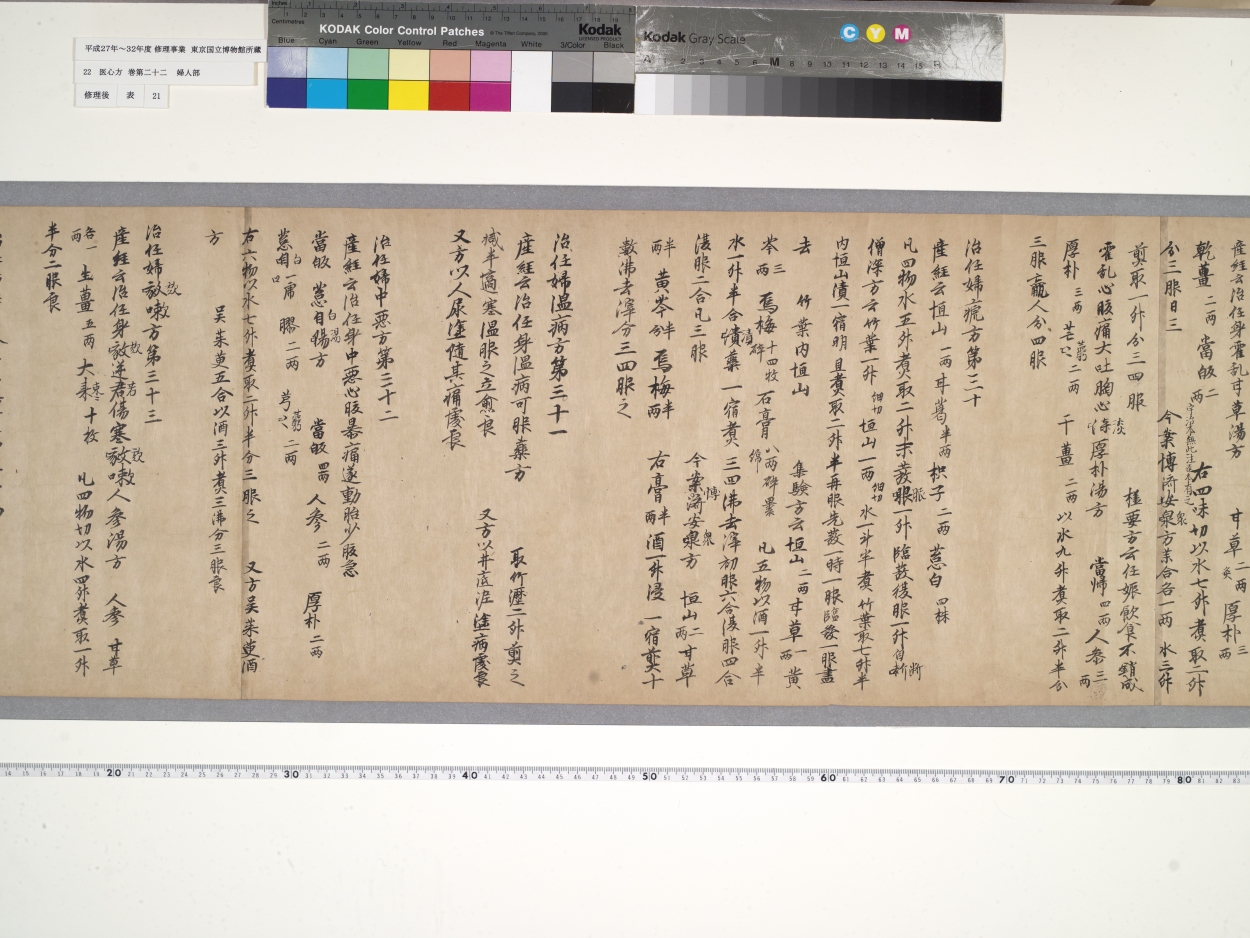 平成27年～32年度 修理事業 東京国立博物館所蔵
22 医心方 巻第二十二 婦人部
修理後 表 21
KODAK Color Control Patches
© The Tiffen Company, 2000
Kodak
LICENSED PRODUCT
Inches
Centimetres
Blue Cyan Green Yellow Red Magenta White 3/Color Black
Kodak Gray Scale
C Y M
A 1 2 3 4 5 6 M 8 9 10 11 12 13 14 15 B
産經云治任身霍乱甘草湯方 甘草二两 厚朴三两
乾薑二两 當皈二两 右四味切以水七升煮取二升
分三服日三 今案博濟安衆方 各一两 水三升
煎取一升分三四服 極要方云任娠飲食不銷成
霍乱心腹痛大吐胸心 厚朴湯方 當帰四两 人参三两
厚朴三两 芎二两 干薑二两 以水九升煮取二升半分
三服羸人分四服
治任婦瘧方第三十
産經云恒山一两 甘草半两 枳子二两 葱白四株
凡四物水五升煮取二升未發服一升臨發後服一升自断
僧深方云竹葉一升細切 恒山一两細切 水一斗半煮竹葉取七升半
内恒山漬一宿明旦煮取二升半再服先發一時一服臨發一服盡
去竹葉内恒山 集驗方云恒山二两 甘草一两 黄
芩三两 烏梅十四枚碎 石膏八两碎綿裹 凡五物以酒一升半
水一升半合漬藥一宿煮三四沸去滓初服六合後服四合
後服二合凡三服 今案博濟安衆方 恒山二两 甘草
半两 黄芩半分 烏梅半两 石膏半两 酒一升浸一宿煎十
數沸去滓分三四服之
治任婦温病方第三十一
産經云治任身温病可服藥方 取竹瀝二升煎之
減半適寒温服之立愈良 又方以井底泥塗病處良
又方以人尿塗隨其痛處良
治任婦中悪方第三十二
産經云治任身中悪心腹暴痛遂動胎少腹急
當皈葱白湯方 當皈四两 人参二两 厚朴二两
葱白一虎口 膠二两 芎二两
右六物以水七升煮取二升半分三服之 又方吴茱萸酒
方 吴茱萸五合以酒三升煮三沸分三服良
治任婦咳嗽方第三十三
産經云治任身咳逆若傷寒咳嗽人参湯方 人参 甘草
各一两 生薑五两 大枣十枚 凡四物切以水四升煮取一升
半分二服良